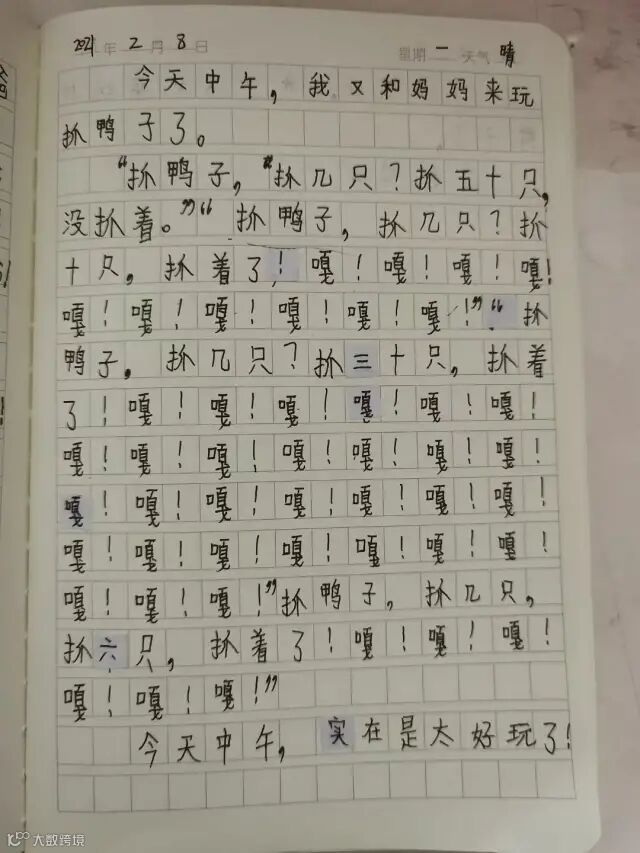 2021年2月8日 星期一 天气 晴
今天中午，我又和妈妈来玩
抓鸭子了。
“抓鸭子，“抓几只？抓五十只，
没抓着。”“抓鸭子，抓几只？抓
十只，抓着了！嘎！嘎！嘎！嘎！
嘎！嘎！嘎！嘎！嘎！嘎！”“抓
鸭子，抓几只？抓三十只，抓着
了！嘎！嘎！嘎！嘎！嘎！嘎！
嘎！嘎！嘎！嘎！嘎！嘎！嘎！
嘎！嘎！嘎！嘎！嘎！嘎！嘎！
嘎！嘎！嘎！嘎！嘎！嘎！嘎！
嘎！嘎！嘎！”抓鸭子，抓几只，
抓六只，抓着了！嘎！嘎！嘎！
嘎！嘎！嘎！”
今天中午，实在是太好玩了！
大数跨境